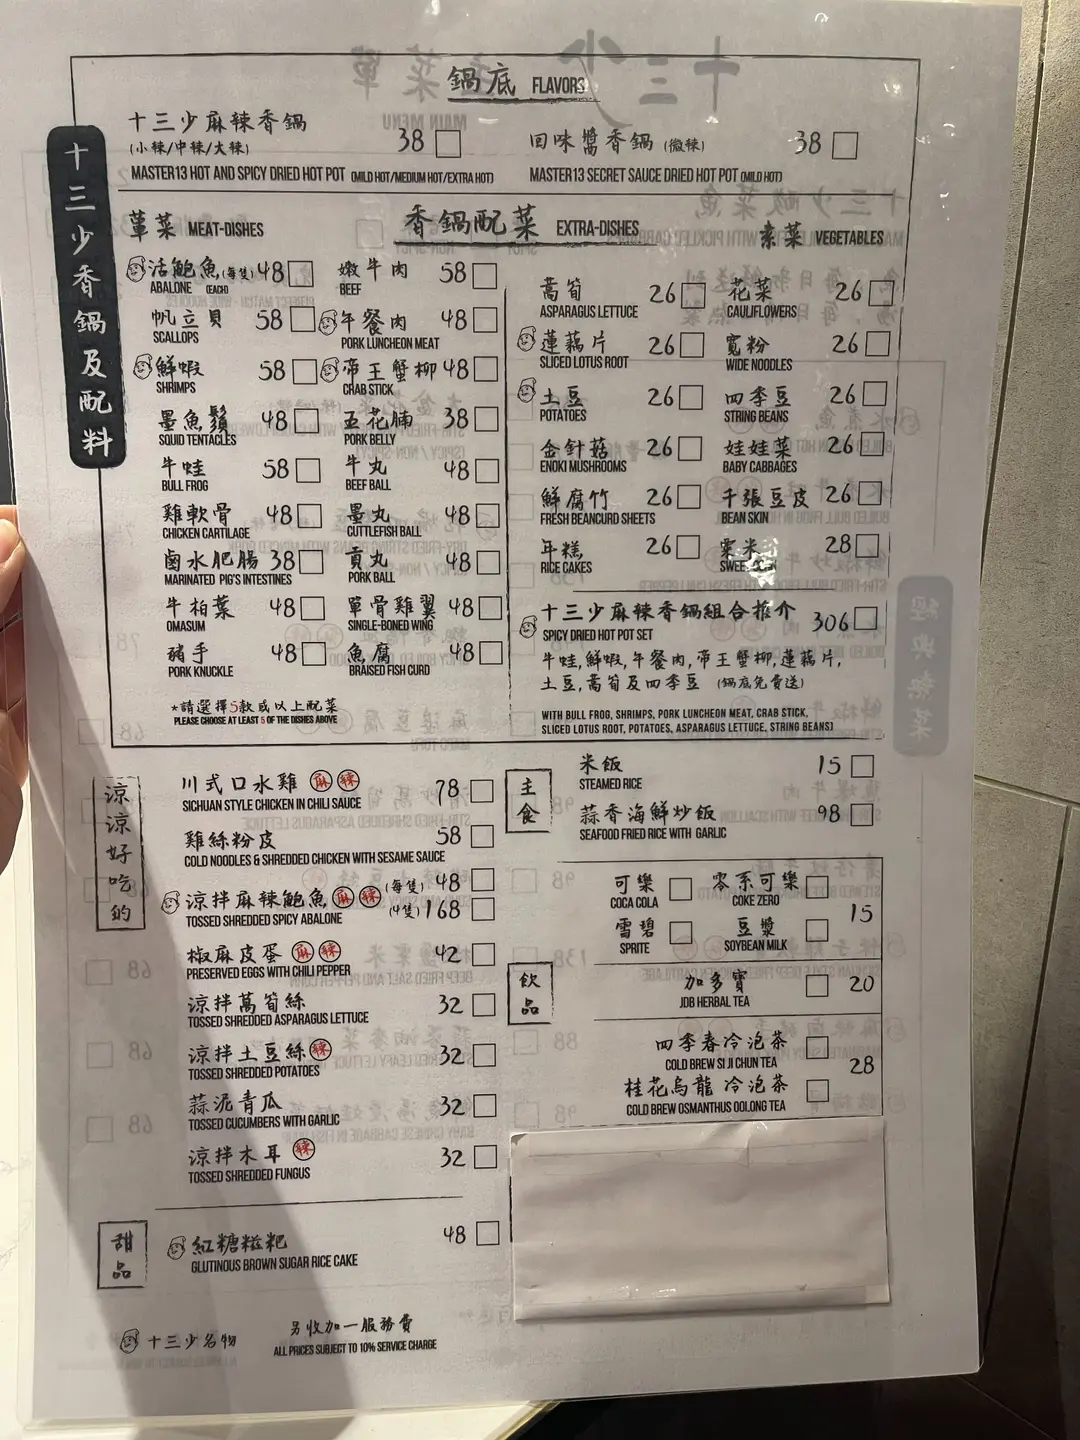 鍋底 FLAVORS
十三少麻辣香鍋 38
(小辣/中辣/大辣)
MASTER13 HOT AND SPICY DRIED HOT POT (MILD HOT/MEDIUM HOT/EXTRA HOT)
回味醬香鍋 (微辣) 38
MASTER13 SECRET SAUCE DRIED HOT POT (MILD HOT)
十三少香鍋及配料
香鍋配菜 EXTRA-DISHES
葷菜 MEAT-DISHES
活鮑魚(每隻) 48
ABALONE (EACH)
帆立貝 58
SCALLOPS
鮮蝦 58
SHRIMPS
墨魚鬚 48
SQUID TENTACLES
牛蛙 58
BULL FROG
雞軟骨 48
CHICKEN CARTILAGE
鹵水肥腸 38
MARINATED PIG'S INTESTINES
牛柏葉 48
OMASUM
豬手 48
PORK KNUCKLE
嫩牛肉 58
BEEF
午餐肉 48
PORK LUNCHEON MEAT
帝王蟹柳 48
CRAB STICK
五花腩 38
PORK BELLY
牛丸 48
BEEF BALL
墨丸 48
CUTTLEFISH BALL
貢丸 48
PORK BALL
單骨雞翼 48
SINGLE-BONED WING
魚腐 48
BRAISED FISH CURD
*請選擇5款或以上配菜
PLEASE CHOOSE AT LEAST 5 OF THE DISHES ABOVE
素菜 VEGETABLES
萵筍 26
ASPARAGUS LETTUCE
蓮藕片 26
SLICED LOTUS ROOT
土豆 26
POTATOES
金針菇 26
ENOKI MUSHROOMS
鮮腐竹 26
FRESH BEANCURD SHEETS
年糕 26
RICE CAKES
花菜 26
CAULIFLOWERS
寬粉 26
WIDE NOODLES
四季豆 26
STRING BEANS
娃娃菜 26
BABY CABBAGES
千張豆皮 26
BEAN SKIN
粟米 28
十三少麻辣香鍋組合推介 306
SPICY DRIED HOT POT SET
牛蛙,鮮蝦,午餐肉,帝王蟹柳,蓮藕片,
土豆,萵筍及四季豆 (鍋底免費送)
WITH BULL FROG, SHRIMPS, PORK LUNCHEON MEAT, CRAB STICK,
SLICED LOTUS ROOT, POTATOES, ASPARAGUS LETTUCE, STRING BEANS)
涼涼好吃的
川式口水雞 麻 辣 78
SICHUAN STYLE CHICKEN IN CHILI SAUCE
雞絲粉皮 58
COLD NOODLES & SHREDDED CHICKEN WITH SESAME SAUCE
涼拌麻辣鮑魚 麻 辣 (每隻) 48
(4隻) 168
TOSSED SHREDDED SPICY ABALONE
椒麻皮蛋 麻 辣 42
PRESERVED EGGS WITH CHILI PEPPER
涼拌萵筍絲 32
TOSSED SHREDDED ASPARAGUS LETTUCE
涼拌土豆絲 辣 32
TOSSED SHREDDED POTATOES
蒜泥青瓜 32
TOSSED CUCUMBERS WITH GARLIC
涼拌木耳 辣 32
TOSSED SHREDDED FUNGUS
甜品
紅糖糍粑 48
GLUTINOUS BROWN SUGAR RICE CAKE
主食
米飯 15
STEAMED RICE
蒜香海鮮炒飯 98
SEAFOOD FRIED RICE WITH GARLIC
飲品
可樂
COCA COLA
零系可樂
COKE ZERO
15
雪碧
SPRITE
豆漿
SOYBEAN MILK
加多寶 20
JDB HERBAL TEA
四季春冷泡茶
COLD BREW SI JI CHUN TEA
28
桂花烏龍 冷泡茶
COLD BREW OSMANTHUS OOLONG TEA
十三少名物
另收加一服務費
ALL PRICES SUBJECT TO 10% SERVICE CHARGE